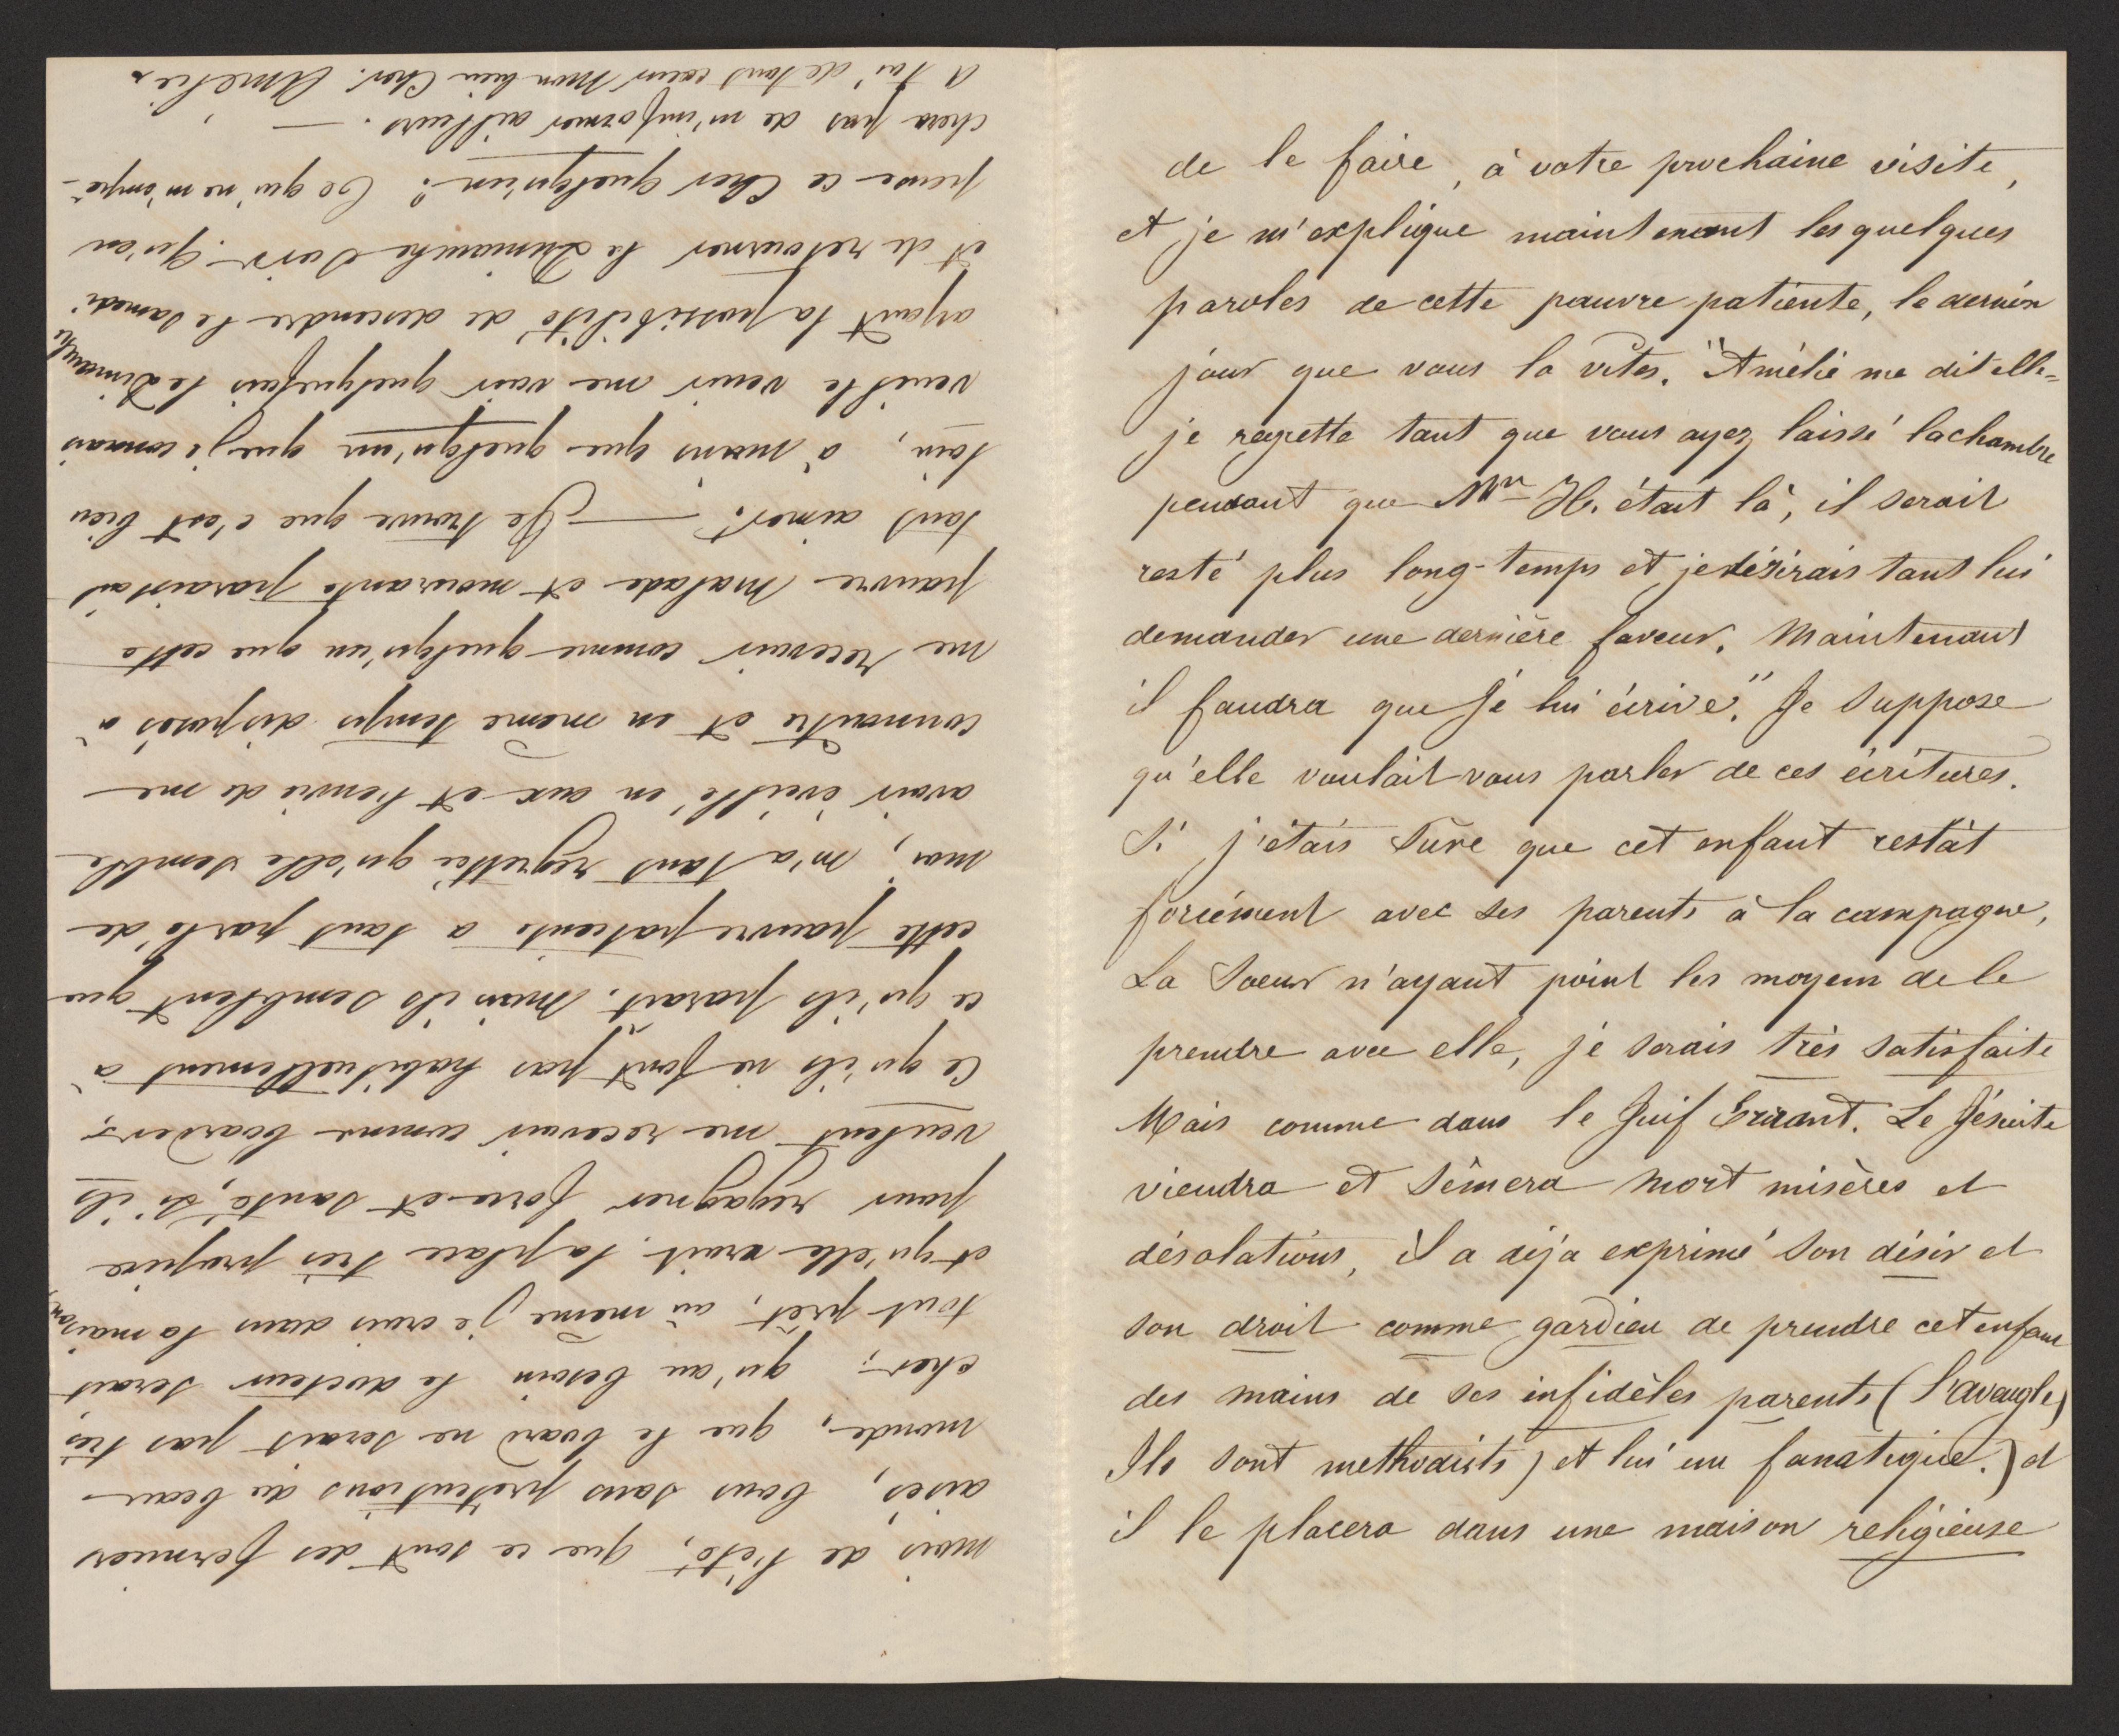 de le faire, à votre prochaine visite,
et je m'explique maintenant les quelques
paroles de cette pauvre patiente, le dernier
jour que vous la vîtes. "Amélie me dit elle-
je regrette tant que vous ayez laissé la chambre
pendant que Mr H. était là, il serait
resté plus long-temps et je désirais tant lui
demander une dernière faveur. Maintenant
il faudra que je lui écrive." Je suppose
qu'elle voulait vous parler de ces écritures.
Si j'étais sûre que cet enfant restât
forcément avec ses parents à la campagne,
La soeur n'ayant point les moyens de le
prendre avec elle, je serais très satisfaite
Mais comme dans le Juif Errant. Le Jésuite
viendra et sêmera mort misères et
désolations, il a déja exprimé son désir et
son droit comme gardien de prendre cet enfant
des mains de ses infidèles parents (l'aveugle)
Ils sont methodists) et lui un fanatique.) et
il le placera dans une maison religieuse
mois de l'été, que ce sont des fermiers
aisés, bons sans prétentions au beau
monde, que le board ne serait pas très
cher; qu'au besoin le docteur serait
tout prêt, où même je crois dans la maison,
et qu'elle croit la place très propice
pour regagner force et santé, s'ils
veulent me recevoir comme boarder,
Ce qu'ils ne font pas habituellement à
ce qu'ils parait. Mais ils semblent que
cette pauvre patiente a tant parlé de
moi, m'a tant regrettée qu'elle semble
avoir éveillé en eux et l'envie de me
connaitre et en même temps disposés à
me recevoir comme quelqu'un que cette
pauvre malade et mourante paraissait
tant aimer. — Je trouve que c'est bien
loin, à moins que quelqu'un que je connais
veuille venir me voir quelquefois le Dimanche
ayant la possibilité de descendre le samedi
et de retourner le Dimanche soir- Qu'en
pense ce Cher quelqu'un? Ce qui ne m'empê-
chera pas de m'informer ailleurs. —
A toi de tout coeur Mon bien Cher. Amélie